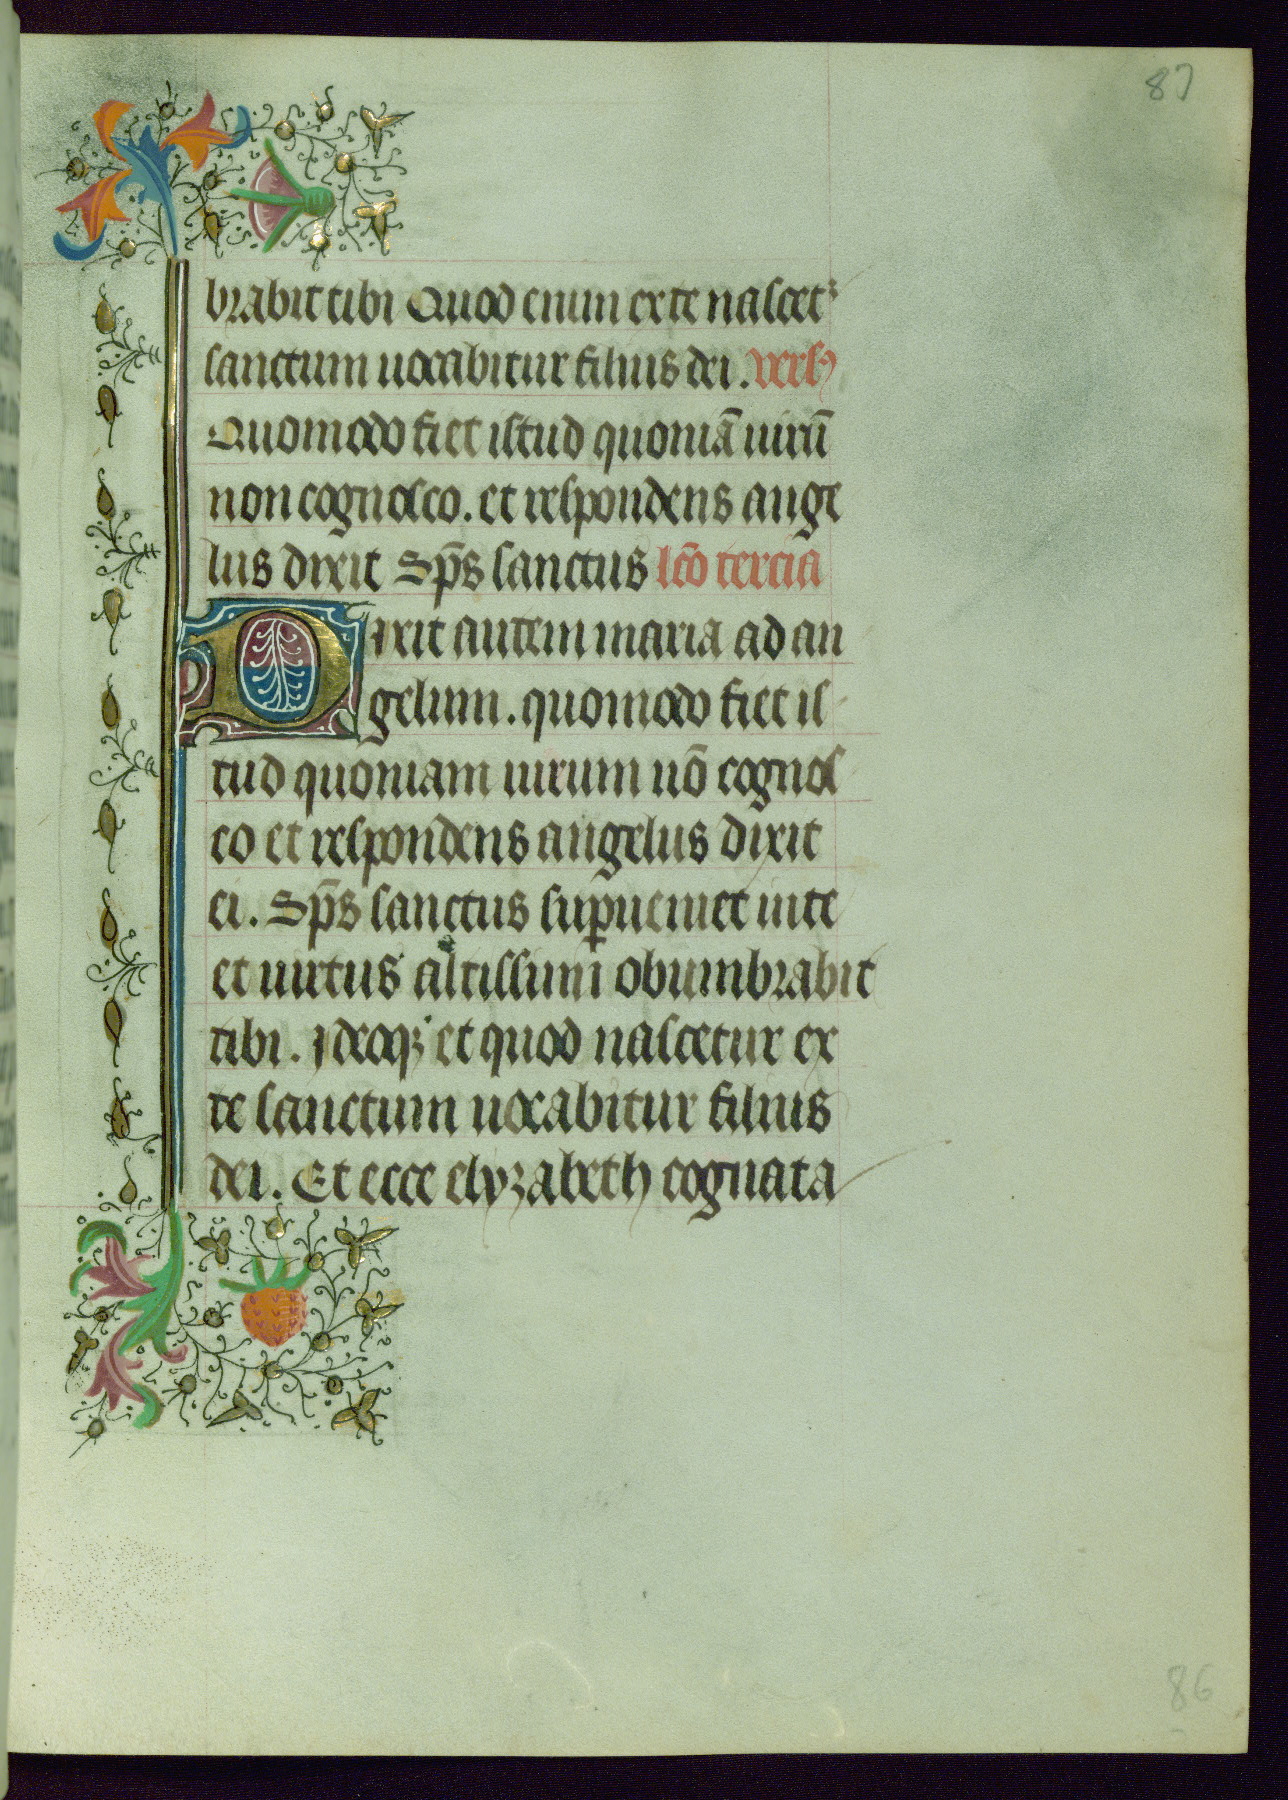 87
brabit tibi Quod enim ex te nascet᷑
sanctum uocabitur filius dei. versꝰ
Quomodo fiet istud quoniā uirū
non cognosco. et respondens ange
lus dixit Sp̄s sanctus lc̄o tercia
Dixit autem maria ad an
gelum. quomodo fiet is
tud quoniam uirum nō cognos
co et respondens angelus dixit
ei. Sp̄s sanctus suꝑueniet in te
et uirtus altissimi obumbrabit
tibi. Ideoqꝫ et quod nascetur ex
te sanctum uocabitur filius
dei. Et ecce elyzabeth cognata
86